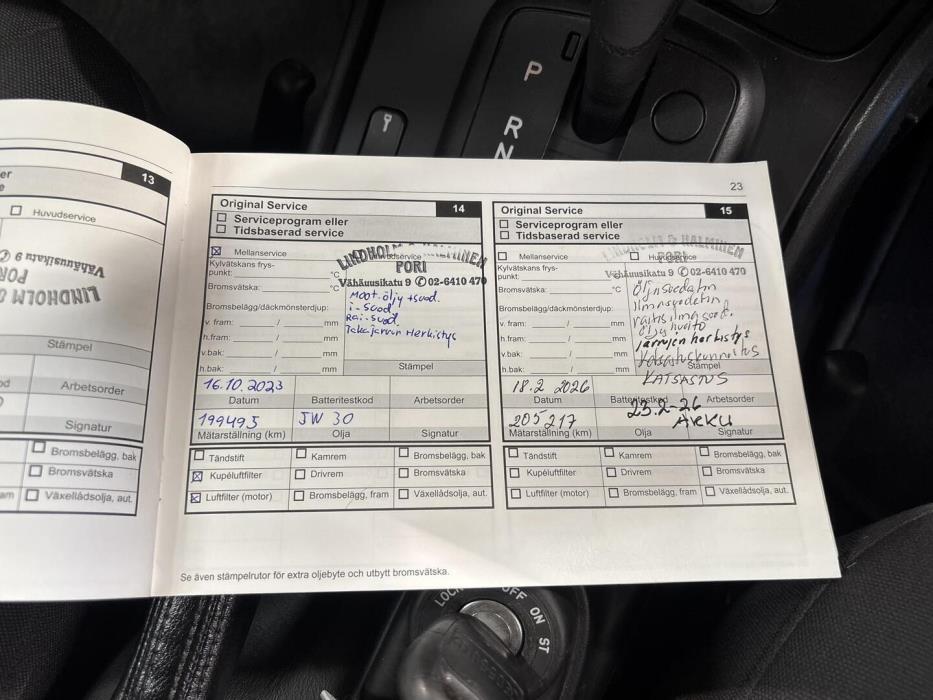 P
R
N
13
Huvudservice
Vähäuusikatu 9 ✆
PORI
LINDHOLM
Stämpel
Arbetsorder
Signatur
Bromsbelägg, bak
Bromsvätska
Växellådsolja, aut.
23
Original Service 14
Serviceprogram eller
Tidsbaserad service
Mellanservice
LINDHOLM & HALMINEN
PORI
Vähäuusikatu 9 ✆ 02-6410 470
Kylvätskans frys-
punkt: °C
Bromsvätska: °C
Bromsbelägg/däckmönsterdjup:
v. fram: / mm
h.fram: / mm
v.bak: / mm
h.bak: / mm
Moot.öljy + suod.
i-suod.
Rai-suod.
Takajarrun Herkistys
Stämpel
16.10.2023
Datum Batteritestkod Arbetsorder
199495 5W 30
Mätarställning (km) Olja Signatur
Tändstift Kamrem Bromsbelägg, bak
Kupéluftfilter Drivrem Bromsvätska
Luftfilter (motor) Bromsbelägg, fram Växellådsolja, aut.
Se även stämpelrutor för extra oljebyte och utbytt bromsvätska.
Original Service 15
Serviceprogram eller
Tidsbaserad service
Mellanservice Huvudservice
LINDHOLM & HALMINEN
PORI
Vähäuusikatu 9 ✆ 02-6410 470
Kylvätskans frys-
punkt:
Bromsvätska: °C
Bromsbelägg/däckmönsterdjup:
v. fram: / mm
h.fram: / mm
v.bak: / mm
h.bak: / mm
Öljnsuodatin
ilmnsuodatin
raitisilmasuod.
öljyhuolto
jarrujen herkistys
Katsastuskunnostus
Stämpel
KATSASTUS
18.2 2026
23.2-26
Datum Batteritestkod Arbetsorder
205217 ARKU
Mätarställning (km) Olja Signatur
Tändstift Kamrem Bromsbelägg, bak
Kupéluftfilter Drivrem Bromsvätska
Luftfilter (motor) Bromsbelägg, fram Växellådsolja, aut.
LOCK OFF ON ST